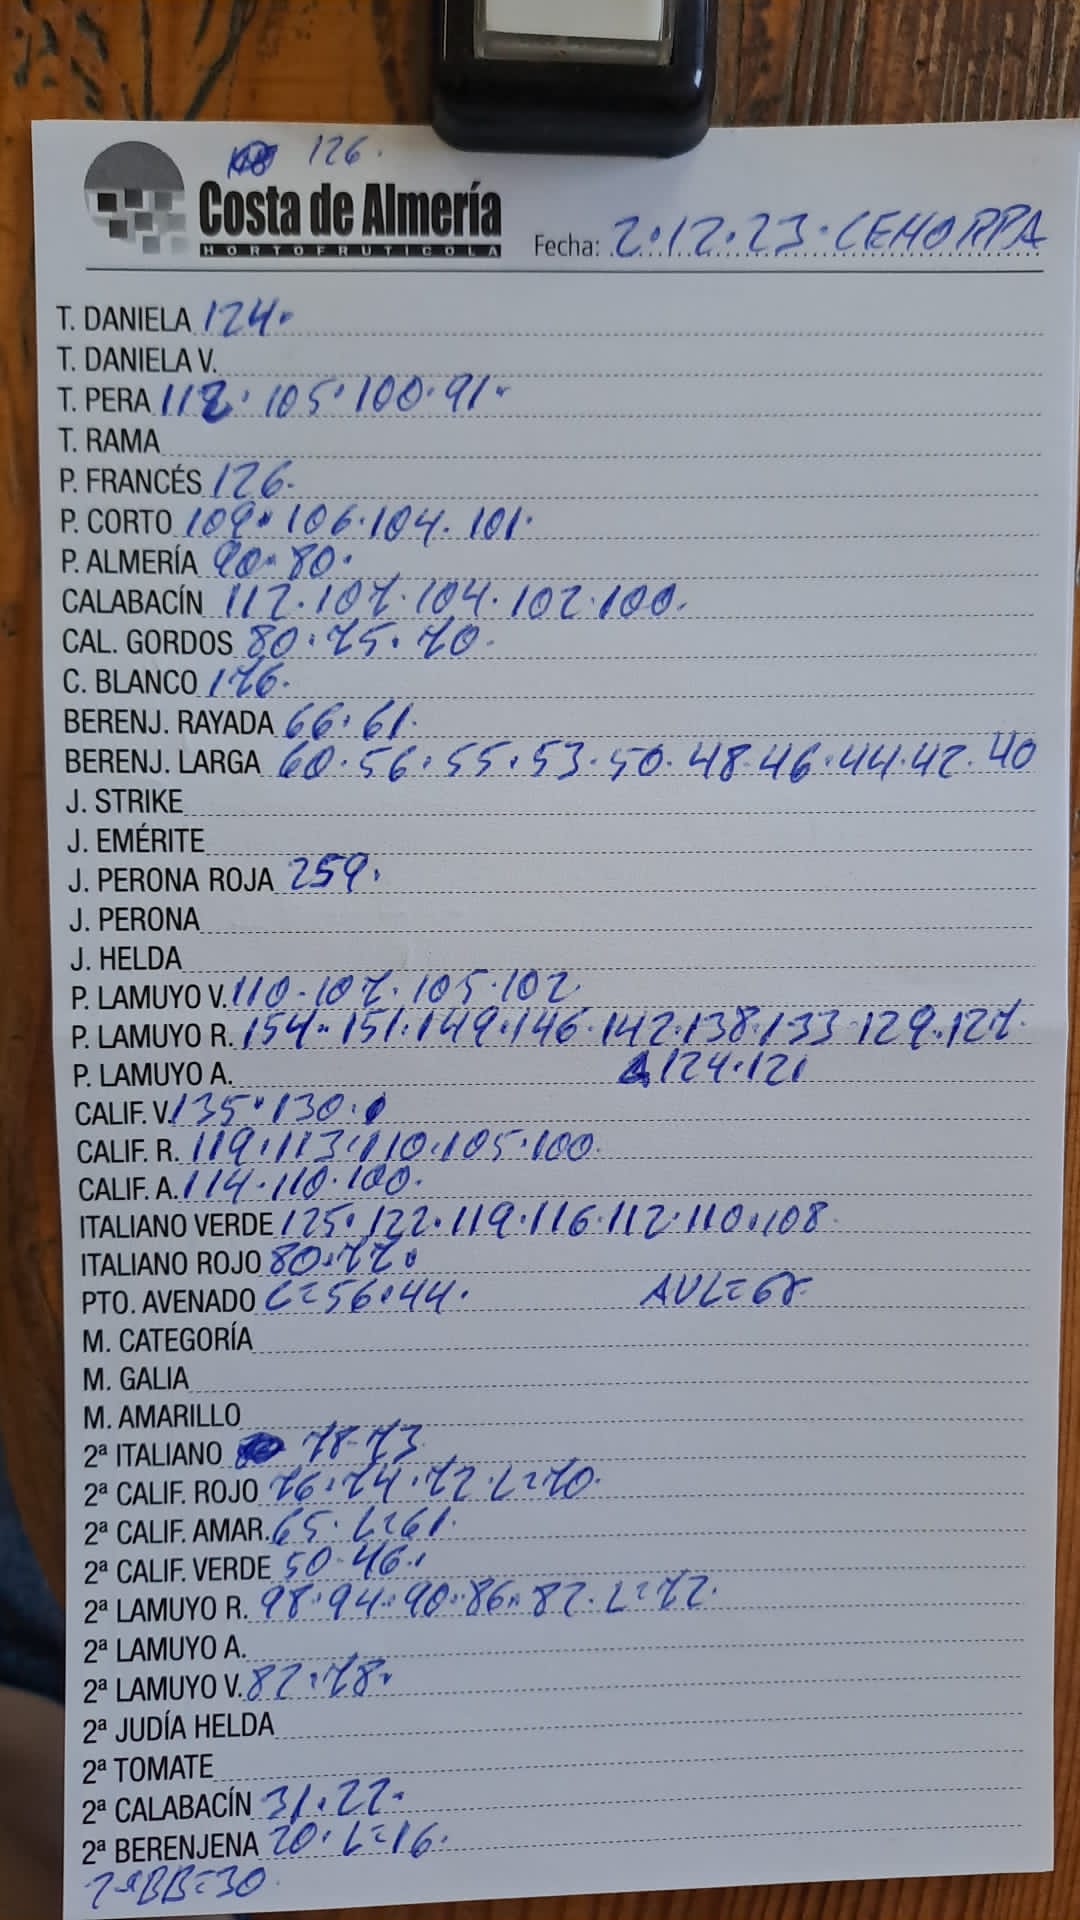 126.
Costa de Almería
HORTOFRUTICOLA
Fecha: 2.12.23. CEHORPA
T. DANIELA 124.
T. DANIELA V.
T. PERA 112. 105. 100. 91.
T. RAMA
P. FRANCÉS 126.
P. CORTO 109. 106. 104. 101.
P. ALMERÍA 90. 80.
CALABACÍN 112. 107. 104. 102. 100.
CAL. GORDOS 80. 75. 70.
C. BLANCO 176.
BERENJ. RAYADA 66. 61.
BERENJ. LARGA 60. 56. 55. 53. 50. 48. 46. 44. 42. 40
J. STRIKE
J. EMÉRITE
J. PERONA ROJA 259.
J. PERONA
J. HELDA
P. LAMUYO V. 110. 107. 105. 102
P. LAMUYO R. 154. 151. 149. 146. 142. 138. 133 129. 127.
P. LAMUYO A. 124. 121
CALIF. V. 135. 130.
CALIF. R. 119. 113. 110. 105. 100.
CALIF. A. 114. 110. 100.
ITALIANO VERDE 125. 122. 119. 116. 112. 110. 108.
ITALIANO ROJO 80. 77.
PTO. AVENADO C=56. 44. AVL=68.
M. CATEGORÍA
M. GALIA
M. AMARILLO
2ª ITALIANO 78-73
2ª CALIF. ROJO 76. 74. 72. L=70.
2ª CALIF. AMAR. 65. L=61.
2ª CALIF. VERDE 50. 46.
2ª LAMUYO R. 98. 94. 90. 86. 82. L=72.
2ª LAMUYO A.
2ª LAMUYO V. 82. 78.
2ª JUDÍA HELDA
2ª TOMATE
2ª CALABACÍN 31. 22.
2ª BERENJENA 20. L=16.
2ªBB=30.